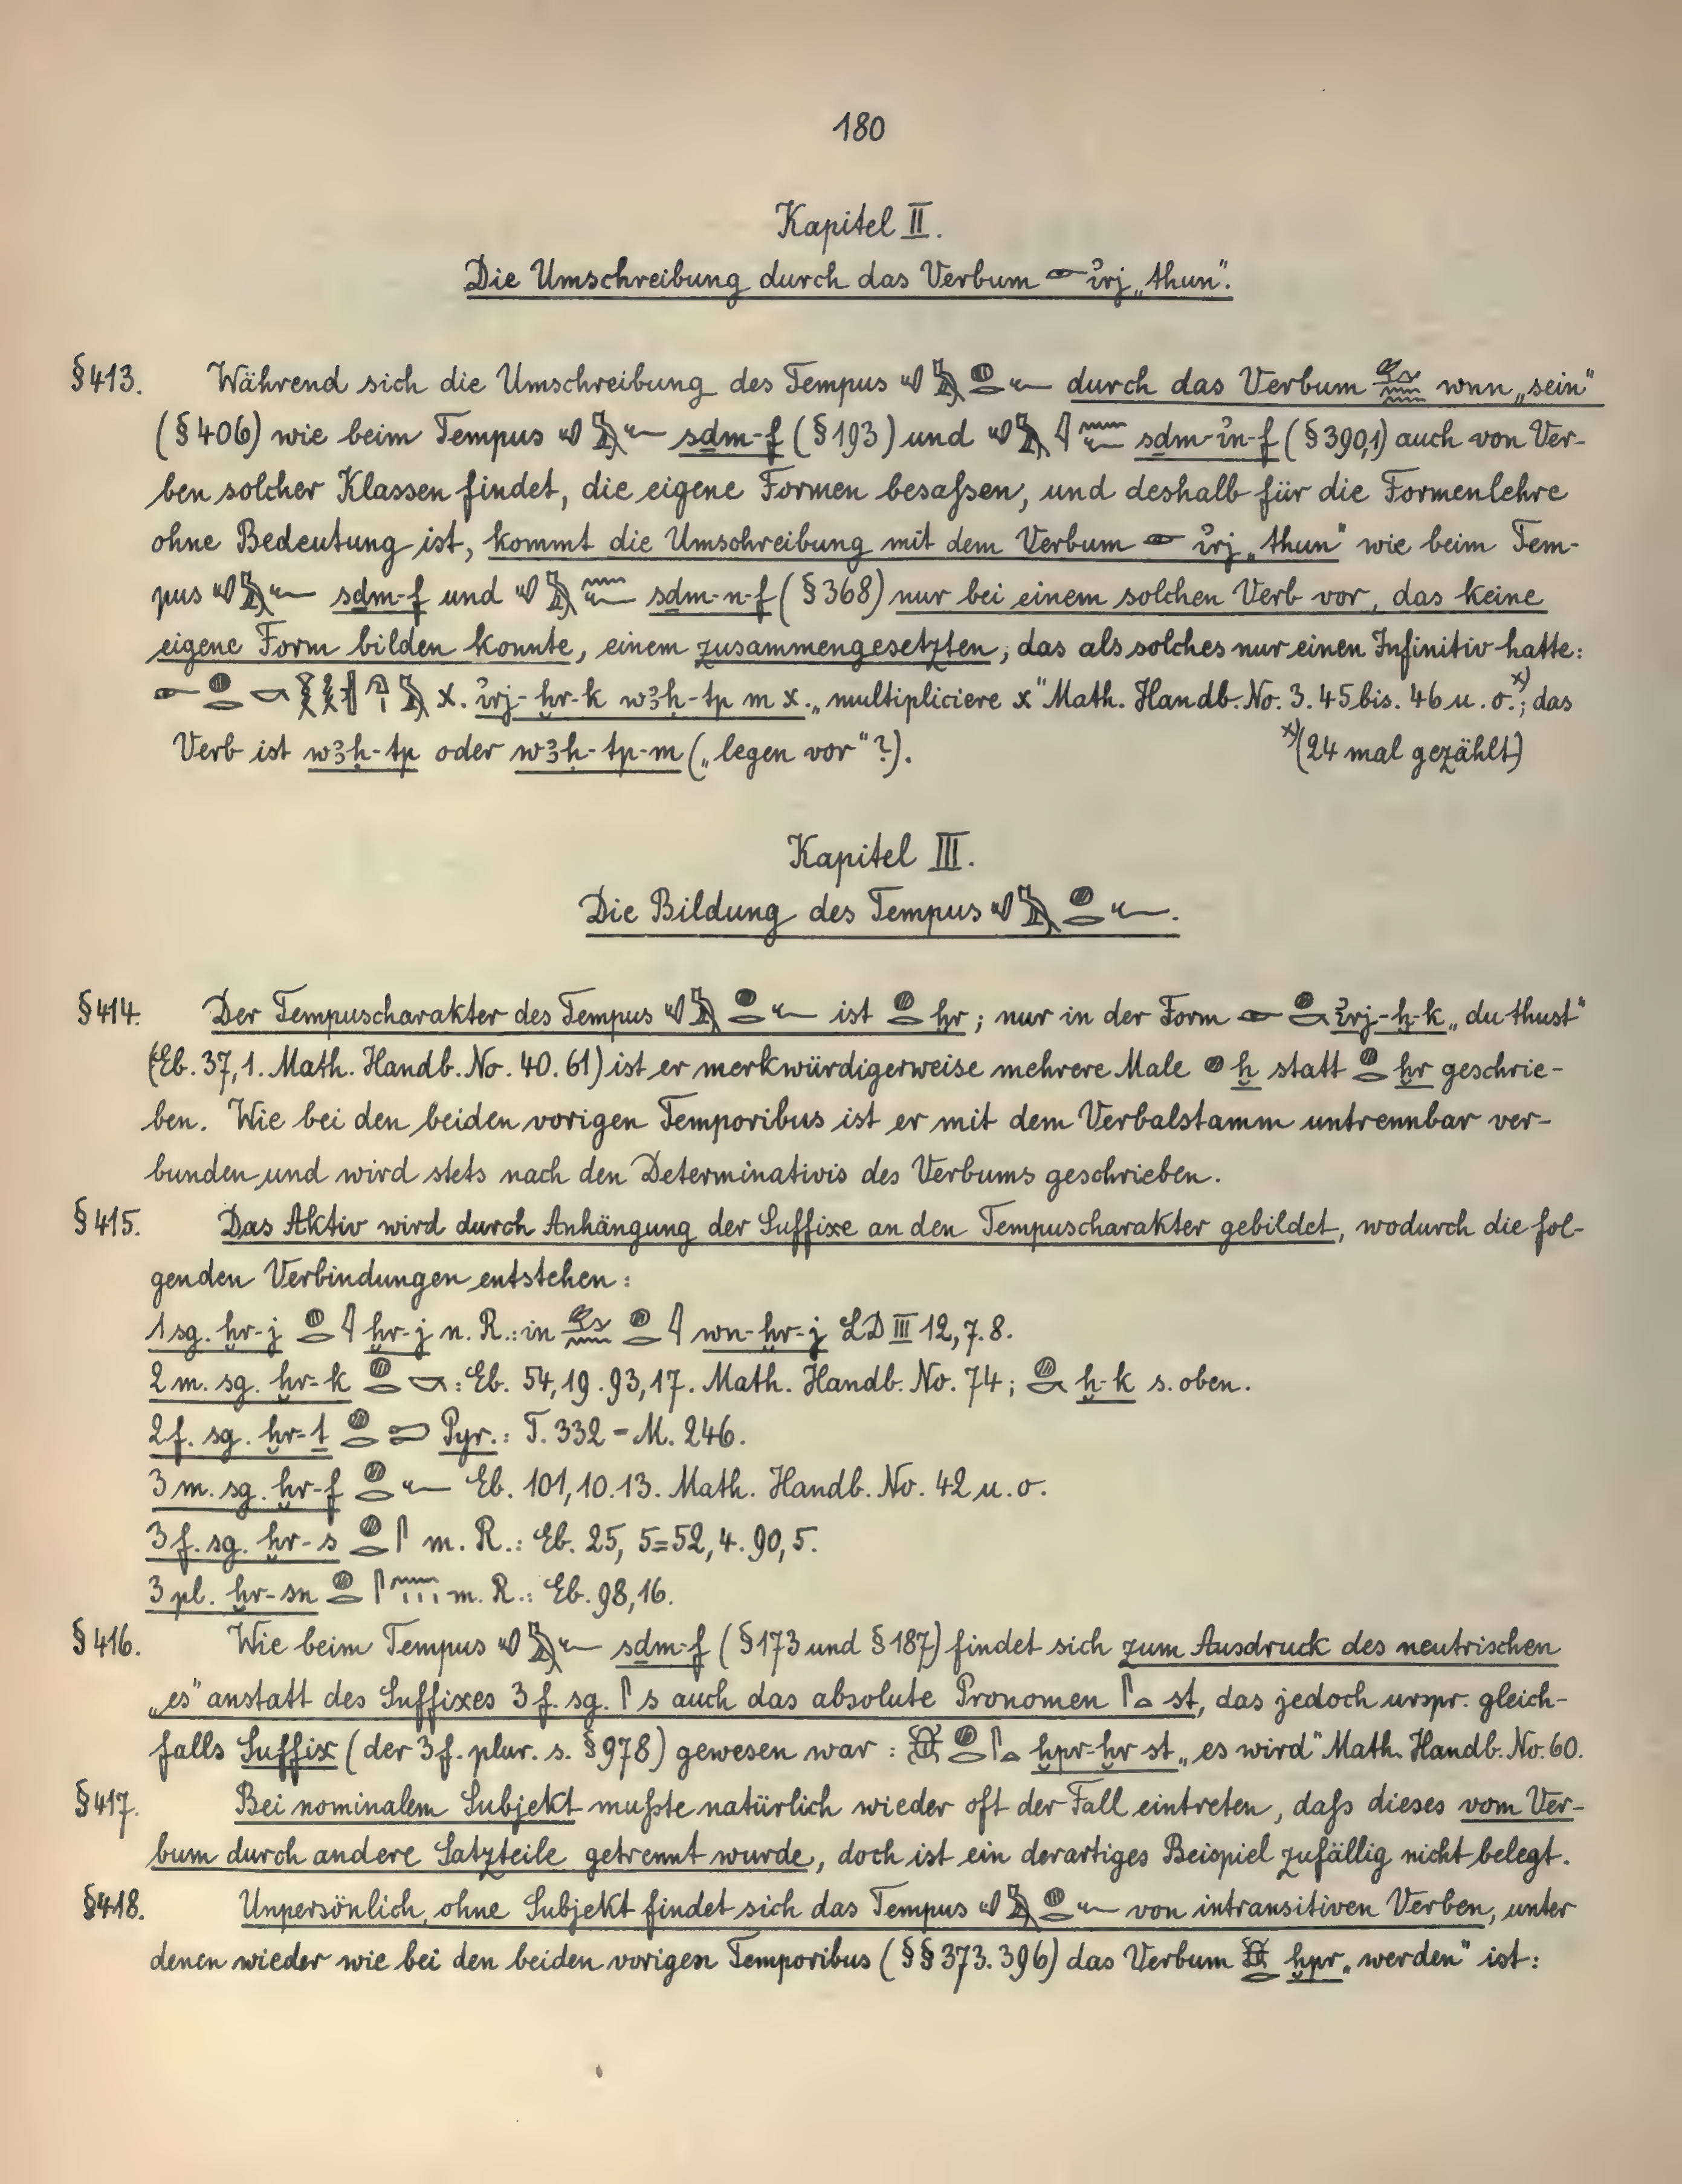 180
Kapitel II.
Die Umschreibung durch das Verbum 𓁹 ỉrj „thun".
§413. Während sich die Umschreibung des Tempus 𓄔𓅓𓐍𓂋𓆑 durch das Verbum 𓃹𓈖𓈖 wnn „sein"
(§406) wie beim Tempus 𓄔𓅓𓆑 sḏm-f (§193) und 𓄔𓅓𓇋𓈖𓆑 sḏm-ỉn-f (§390,1) auch von Ver-
ben solcher Klassen findet, die eigene Formen besaſsen, und deshalb für die Formenlehre
ohne Bedeutung ist, kommt die Umschreibung mit dem Verbum 𓁹 ỉrj „thun" wie beim Tem-
pus 𓄔𓅓𓆑 sḏm-f und 𓄔𓅓𓈖𓆑 sḏm-n-f (§368) nur bei einem solchen Verb vor, das keine
eigene Form bilden konnte, einem zusammengesetzten, das als solches nur einen Infinitiv hatte:
x. ỉrj-ḫr-k wꜣḥ-tp m x. „multipliciere x" Math. Handb. No. 3. 45 bis. 46 u. o.ˣ⁾; das
Verb ist wꜣḥ-tp oder wꜣḥ-tp-m („legen vor"?). ˣ⁾(24 mal gezählt)
Kapitel III.
Die Bildung des Tempus 𓄔𓅓𓐍𓂋𓆑.
§414. Der Tempuscharakter des Tempus 𓄔𓅓𓐍𓂋𓆑 ist 𓐍𓂋 ḫr; nur in der Form 𓁹𓐍𓎡 ỉrj-ḫ-k „du thust"
(Eb. 37,1. Math. Handb. No. 40. 61) ist er merkwürdigerweise mehrere Male 𓐍 ḫ statt 𓐍𓂋 ḫr geschrie-
ben. Wie bei den beiden vorigen Temporibus ist er mit dem Verbalstamm untrennbar ver-
bunden und wird stets nach den Determinativis des Verbums geschrieben.
§415. Das Aktiv wird durch Anhängung der Suffixe an den Tempuscharakter gebildet, wodurch die fol-
genden Verbindungen entstehen:
1 sg. ḫr-j 𓐍𓂋𓇋 ḫr-j n. R.: in 𓃹𓈖𓐍𓂋𓇋 wn-ḫr-j LD III 12, 7. 8.
2 m. sg. ḫr-k 𓐍𓂋𓎡: Eb. 54,19. 93,17. Math. Handb. No. 74; 𓐍𓎡 ḫ-k s. oben.
2 f. sg. ḫr-ṯ 𓐍𓂋𓍿 Pyr.: T. 332 = M. 246.
3 m. sg. ḫr-f 𓐍𓂋𓆑 Eb. 101,10.13. Math. Handb. No. 42 u. o.
3 f. sg. ḫr-s 𓐍𓂋𓋴 m. R.: Eb. 25, 5=52,4. 90,5.
3 pl. ḫr-sn 𓐍𓂋𓋴𓈖𓏥 m. R.: Eb. 98,16.
§416. Wie beim Tempus 𓄔𓅓𓆑 sḏm-f (§173 und §187) findet sich zum Ausdruck des neutrischen
„es" anstatt des Suffixes 3 f. sg. 𓋴 s auch das absolute Pronomen 𓋴𓏏 st, das jedoch urspr. gleich-
falls Suffix (der 3 f. plur. s. §978) gewesen war: 𓆣𓐍𓂋𓋴𓏏 ḫpr-ḫr st „es wird" Math. Handb. No. 60.
§417. Bei nominalem Subjekt muſste natürlich wieder oft der Fall eintreten, daſs dieses vom Ver-
bum durch andere Satzteile getrennt wurde, doch ist ein derartiges Beispiel zufällig nicht belegt.
§418. Unpersönlich, ohne Subjekt findet sich das Tempus 𓄔𓅓𓐍𓂋𓆑 von intransitiven Verben, unter
denen wieder wie bei den beiden vorigen Temporibus (§§373. 396) das Verbum 𓆣𓂋 ḫpr „werden" ist: